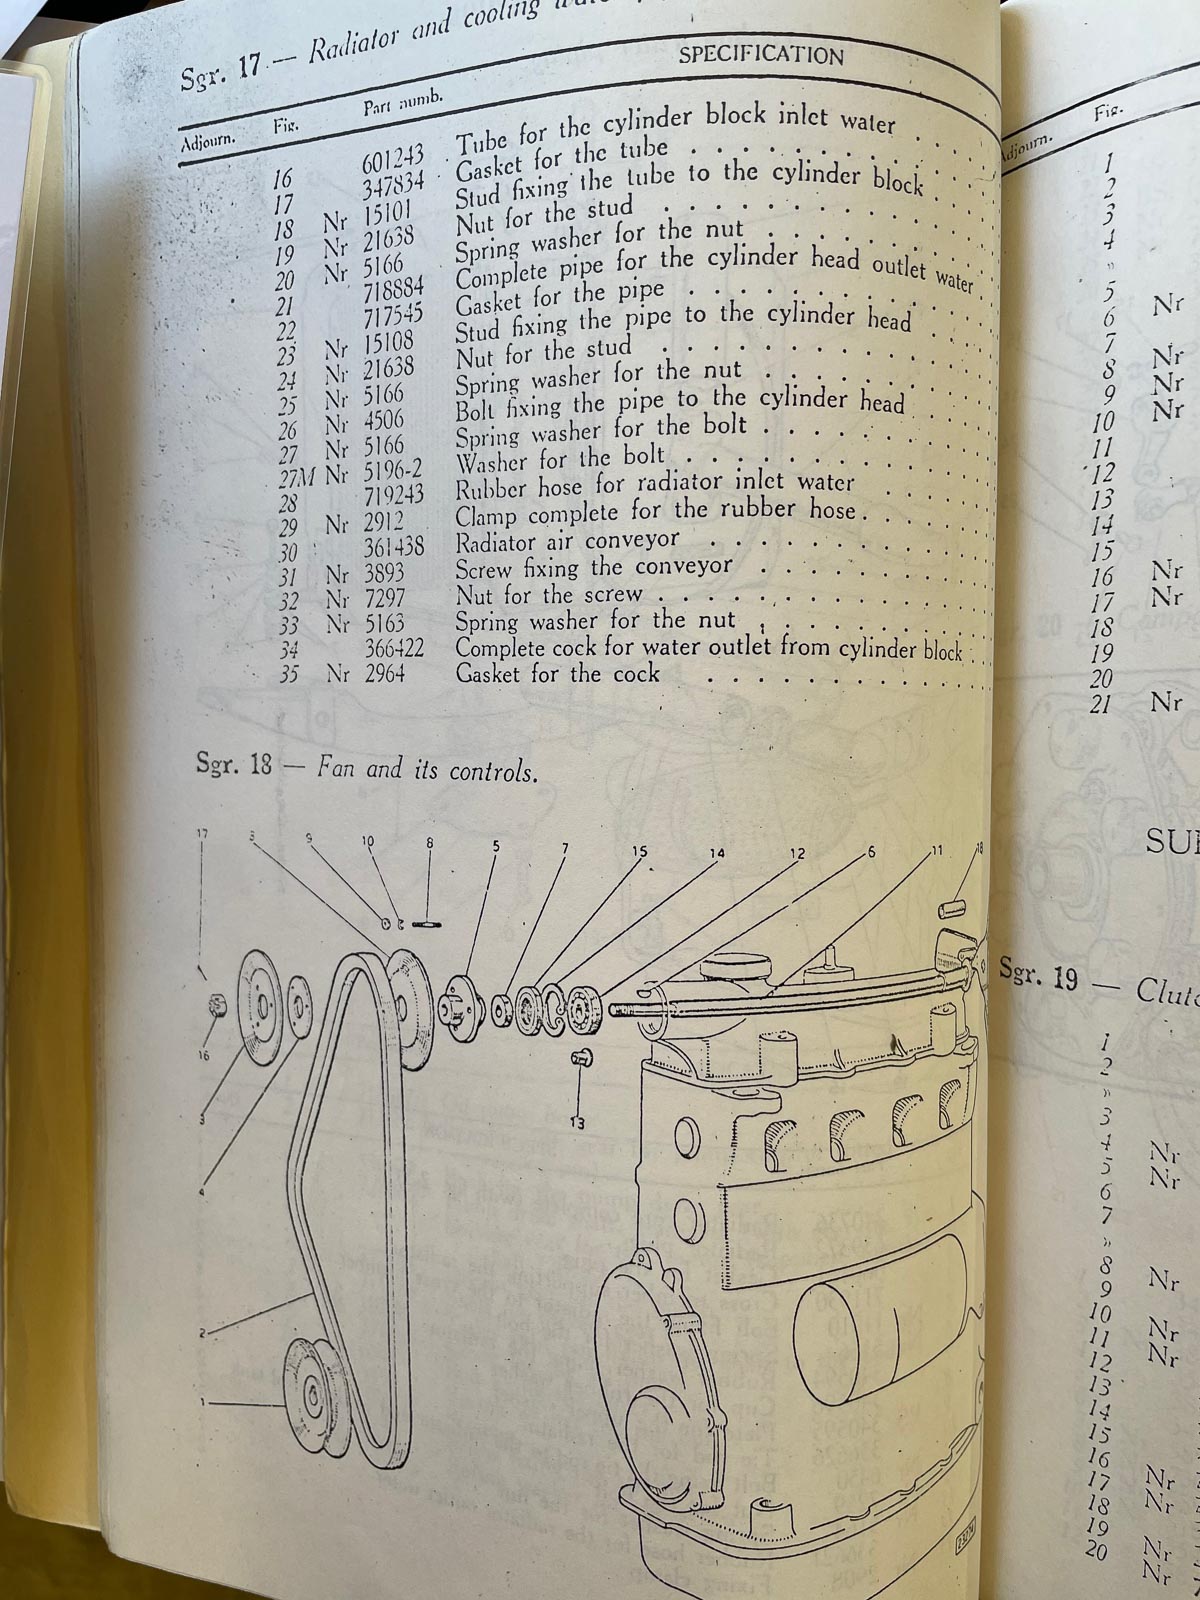 Sgr. 17 — Radiator and cooling water
SPECIFICATION
Adjourn. Fig. Part numb.
16 601243 Tube for the cylinder block inlet water
17 347834 Gasket for the tube
18 Nr 15101 Stud fixing the tube to the cylinder block
19 Nr 21638 Nut for the stud
20 Nr 5166 Spring washer for the nut
21 718884 Complete pipe for the cylinder head outlet water
22 717545 Gasket for the pipe
23 Nr 15108 Stud fixing the pipe to the cylinder head
24 Nr 21638 Nut for the stud
25 Nr 5166 Spring washer for the nut
26 Nr 4506 Bolt fixing the pipe to the cylinder head
27 Nr 5166 Spring washer for the bolt
27M Nr 5196-2 Washer for the bolt
28 719243 Rubber hose for radiator inlet water
29 Nr 2912 Clamp complete for the rubber hose
30 361438 Radiator air conveyor
31 Nr 3893 Screw fixing the conveyor
32 Nr 7297 Nut for the screw
33 Nr 5163 Spring washer for the nut
34 366422 Complete cock for water outlet from cylinder block
35 Nr 2964 Gasket for the cock
Sgr. 18 — Fan and its controls.
17 3 9 10 8 5 7 15 14 12 6 11 18
16
13
3
4
2
1
Adjourn. Fig.
1
2
3
4
»
5
6 Nr
7
8 Nr
9 Nr
10 Nr
11
12
13
14
15
16 Nr
17 Nr
18
19
20
21 Nr
Sgr. 19 —
1
2
»
3
4
5 Nr
6 Nr
7
»
8
9 Nr
10
11 Nr
12 Nr
13
14
15
16
17 Nr
18 Nr
19
20 Nr
Nr